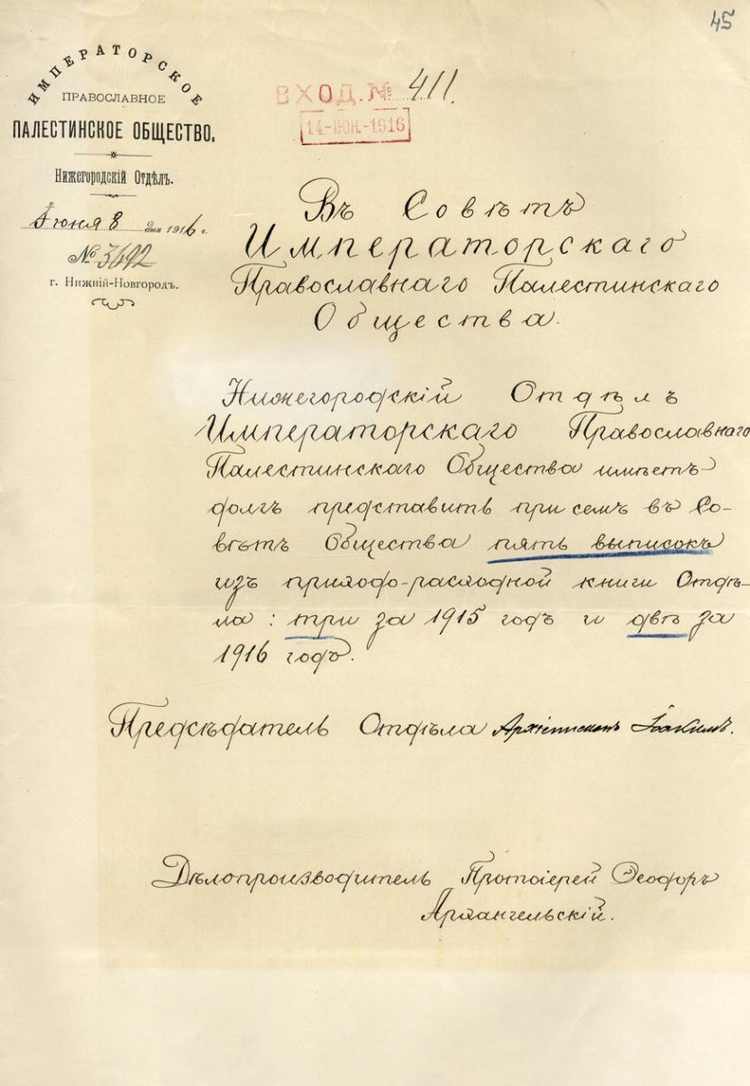 45
ИМПЕРАТОРСКОЕ
ПРАВОСЛАВНОЕ
ПАЛЕСТИНСКОЕ ОБЩЕСТВО,
Нижегородскій Отдѣлъ.
Іюня 8 дня 1916 г.
№ 3692
г. Нижній-Новгородъ.
ВХОД. № 411.
14-ІЮН.-1916
Въ Совѣтъ
Императорскаго
Православнаго Палестинскаго
Общества.
Нижегородскій Отдѣлъ
Императорскаго Православнаго
Палестинскаго Общества имѣетъ
долгъ представить при семъ въ Со-
вѣтъ Общества пять выписокъ
изъ приходо-расходной книги Отдѣ-
ла: три за 1915 годъ и двѣ за
1916 годъ.
Предсѣдатель Отдѣла Архіепископъ Іоакимъ.
Дѣлопроизводитель Протоіерей Ѳеодоръ
Архангельскій.